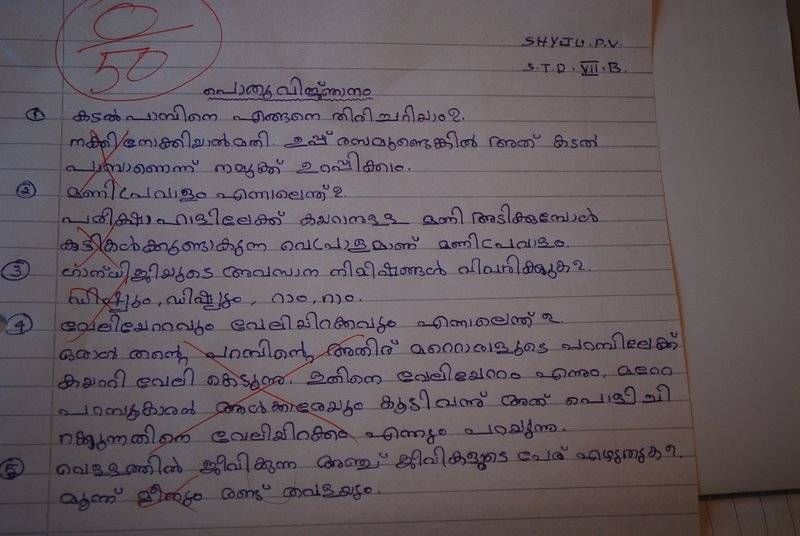 0/50
SHYJU.P.V.
S.T.D. VII. B.
പൊതു വിജ്ഞാനം
① കടൽ പാമ്പിനെ എങ്ങനെ തിരിച്ചറിയാം?.
നക്കി നോക്കിയാൽ മതി. ഉപ്പ് രസമുണ്ടെങ്കിൽ അത് കടൽ
പാമ്പാണെന്ന് നമുക്ക് ഉറപ്പിക്കാം.
② മണിപ്രവാളം എന്നാലെന്ത്?.
പരിക്ഷാഹാളിലേക്ക് കയറാനുള്ള മണി അടിക്കുമ്പോൾ
കുട്ടികൾക്കുണ്ടാകുന്ന വെപ്രാളമാണ് മണിപ്രവാളം.
③ ഗാന്ധിജിയുടെ അവസാന നിമിഷങ്ങൾ വിവരിക്കുക?.
ഡിഷ്ഷും, ഡിഷ്ഷും, റാം, റാം.
④ വേലിയേറ്റവും വേലിയിറക്കവും എന്നാലെന്ത്?.
ഒരാൾ തന്റെ പറമ്പിന്റെ അതിര് മറ്റൊരാളുടെ പറമ്പിലേക്ക്
കയറി വേലി കെട്ടുന്നു. ഇതിനെ വേലിയേറ്റം എന്നും, മറ്റേ
പറമ്പുകാരൻ ആൾക്കാരേയും കൂട്ടി വന്ന് അത് പൊളിച്ചി
റക്കുന്നതിനെ വേലിയിറക്കം എന്നും പറയുന്നു.
⑤ വെള്ളത്തിൽ ജീവിക്കുന്ന അഞ്ച് ജീവികളുടെ പേര് എഴുതുക?.
മൂന്ന് മീനും രണ്ട് തവളയും.